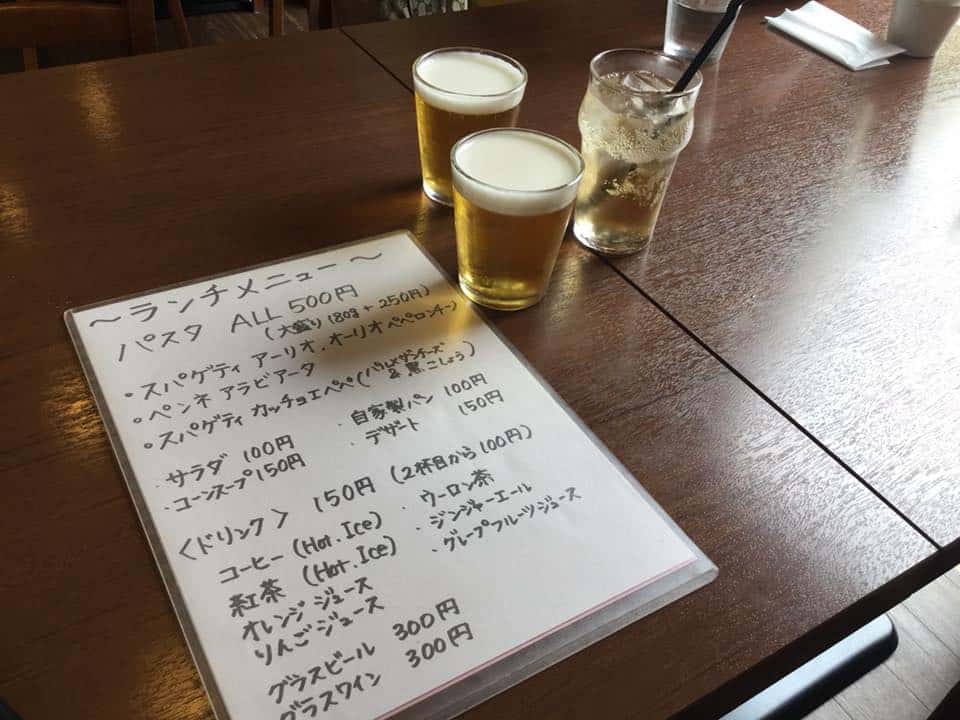 ～ランチメニュー～
パスタ ALL 500円
(大盛り 180g +250円)
・スパゲティ アーリオ・オーリオ ペペロンチーノ
・ペンネ アラビアータ
・スパゲティ カッチョエペペ (パルメザンチーズ & 黒こしょう)
・サラダ 100円 ・自家製パン 100円
・コーンスープ 150円 ・デザート 150円
〈ドリンク〉 150円 (2杯目から100円)
コーヒー (Hot. Ice) ・ウーロン茶
紅茶 (Hot. Ice) ・ジンジャーエール
オレンジジュース ・グレープフルーツジュース
りんごジュース
グラスビール 300円
グラスワイン 300円